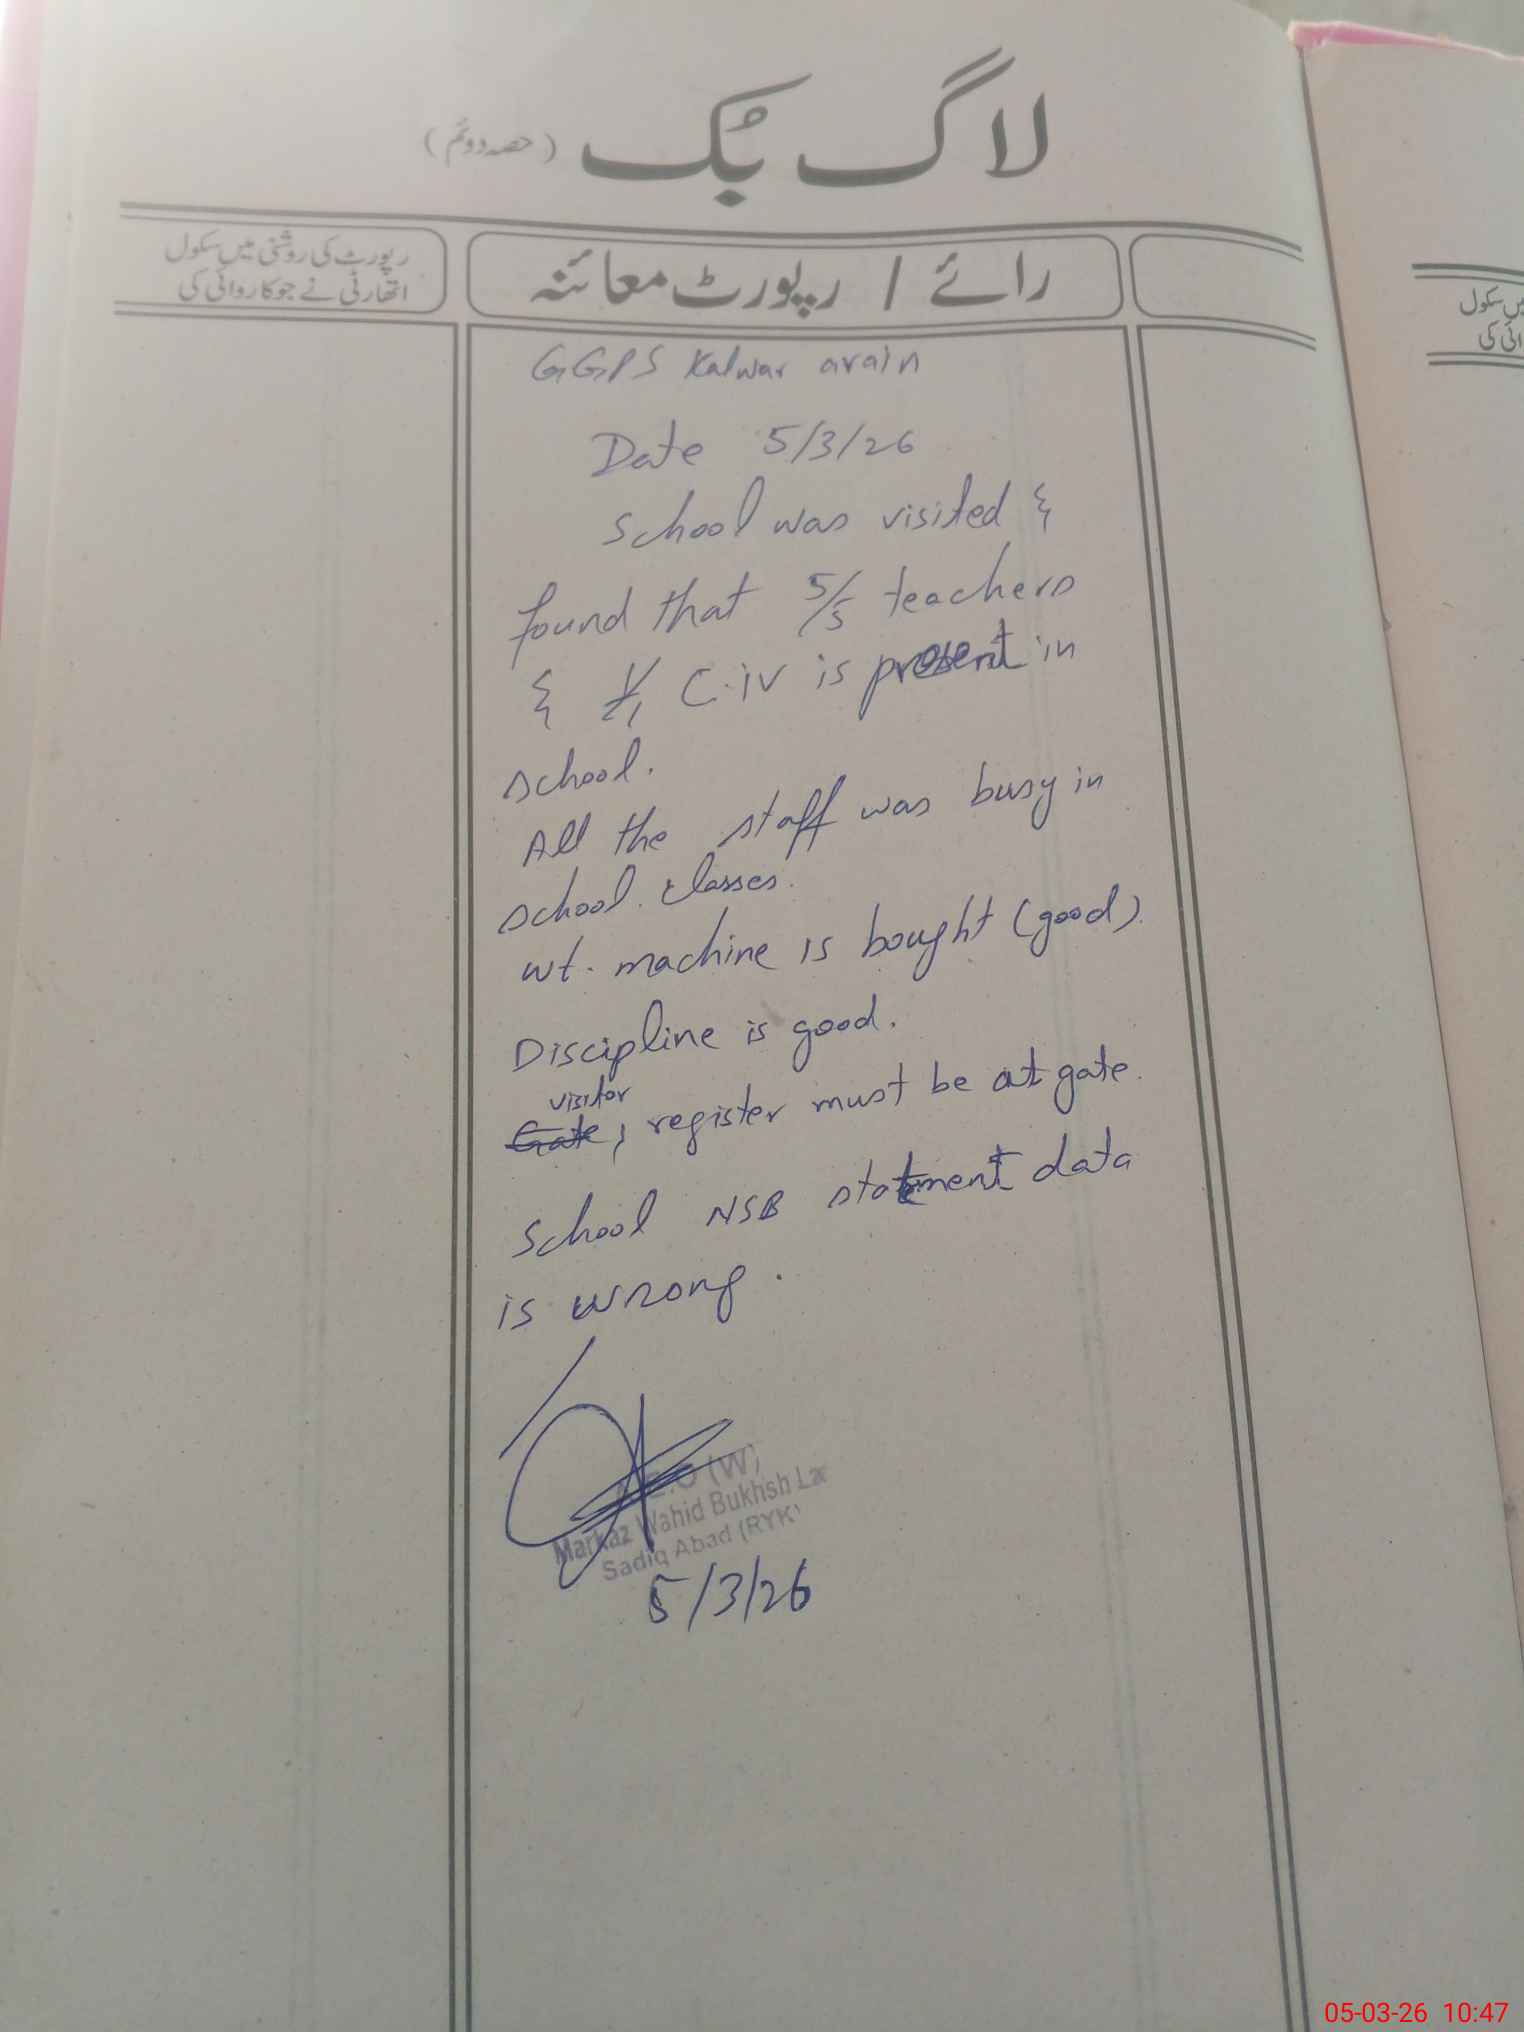 لاگ بُک (حصہ دوئم)
رائے / رپورٹ معائنہ
رپورٹ کی روشنی میں سکول
اتھارٹی نے جو کاروائی کی
GGPS Kalwar arain
Date 5/3/26
School was visited &
found that 5/5 teachers
& 1/1 C-iv is present in
school.
All the staff was busy in
school. classes.
wt. machine is bought (good).
Discipline is good.
visitor
Gate, register must be at gate.
School NSB statment data
is wrong.
E.O (W)
Markaz Wahid Bukhsh La
Sadiq Abad (RYK)
5/3/26
میں سکول
ائی کی
05-03-26 10:47